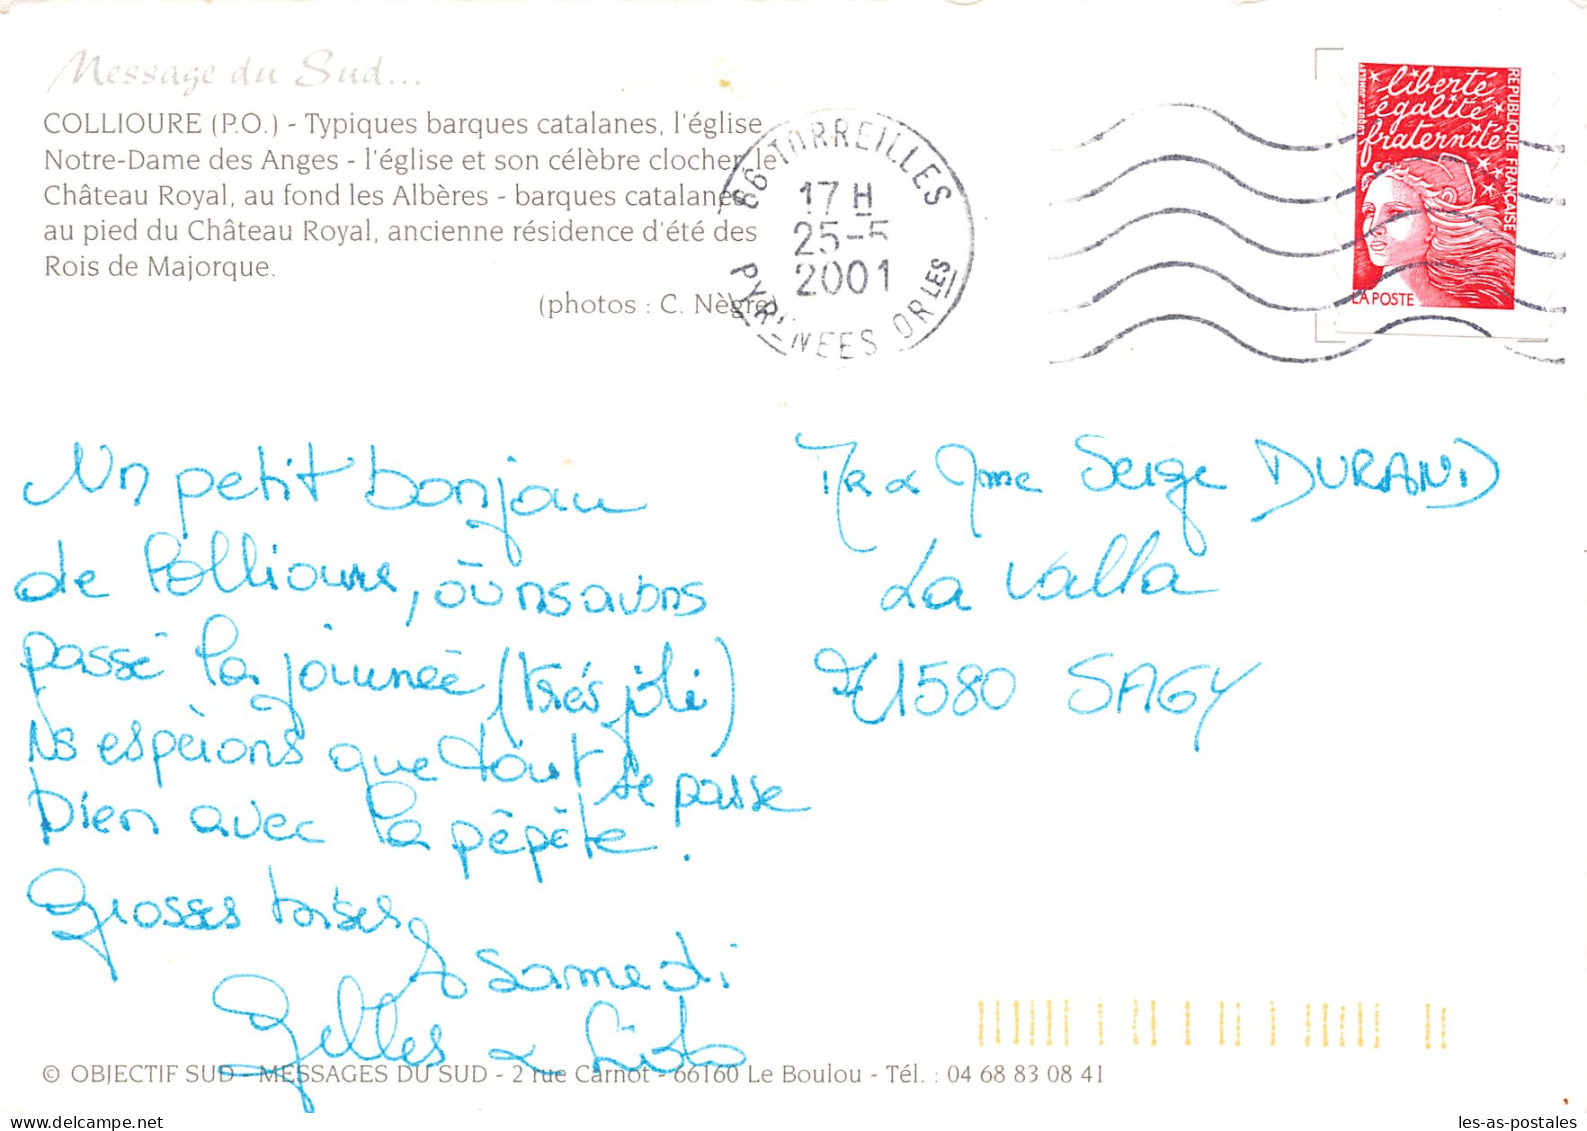 Message du Sud...
COLLIOURE (P.O.) - Typiques barques catalanes, l'église
Notre-Dame des Anges - l'église et son célèbre clocher, le
Château Royal, au fond les Albères - barques catalanes
au pied du Château Royal, ancienne résidence d'été des
Rois de Majorque.
(photos : C. Nègre)
66 TORREILLES
17 H
25-5
2001
PYRENEES ORLES
liberté
égalité
fraternité
REPUBLIQUE FRANÇAISE
LA POSTE
Un petit bonjou
de Collioure, où ns avons
passé la journée (très joli)
Ns espérons que tout se passe
bien avec la pépète.
Grosses bises
& Samedi
Gilles &
Mr & Mme Serge DURAND
La Valla
71580 SAGY
© OBJECTIF SUD - MESSAGES DU SUD - 2 rue Carnot - 66160 Le Boulou - Tél. : 04 68 83 08 41
www.delcampe.net
les-as-postales